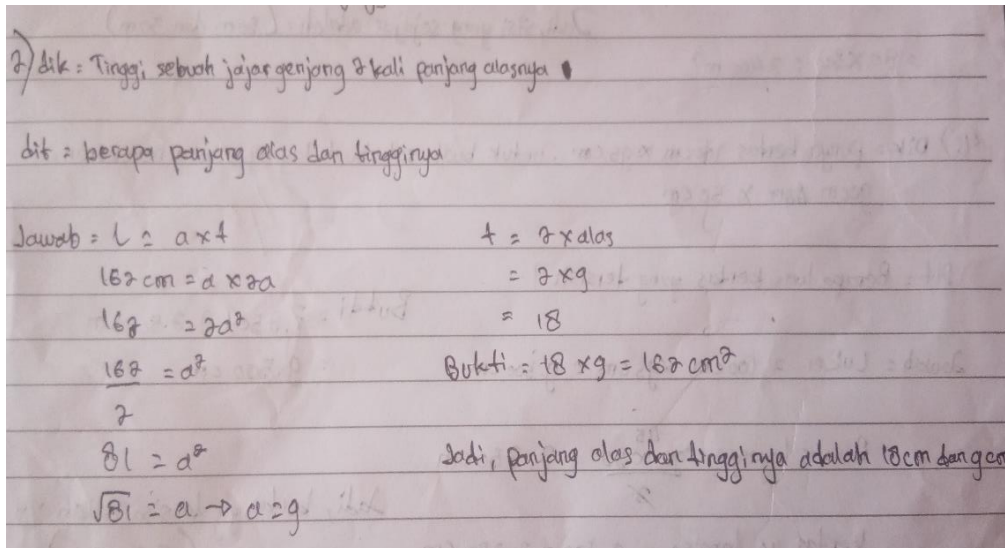 2) dik = Tinggi sebuah jajar genjang 2 kali panjang alasnya
dit = berapa panjang alas dan tingginya
Jawab = L = a x t
162 cm = a x 2a
162 = 2a²
162 = a²
2
81 = a²
√81 = a → a = 9
t = 2 x alas
= 2 x 9
= 18
Bukti = 18 x 9 = 162 cm²
Jadi, panjang alas dan tingginya adalah 18cm dan 9 cm